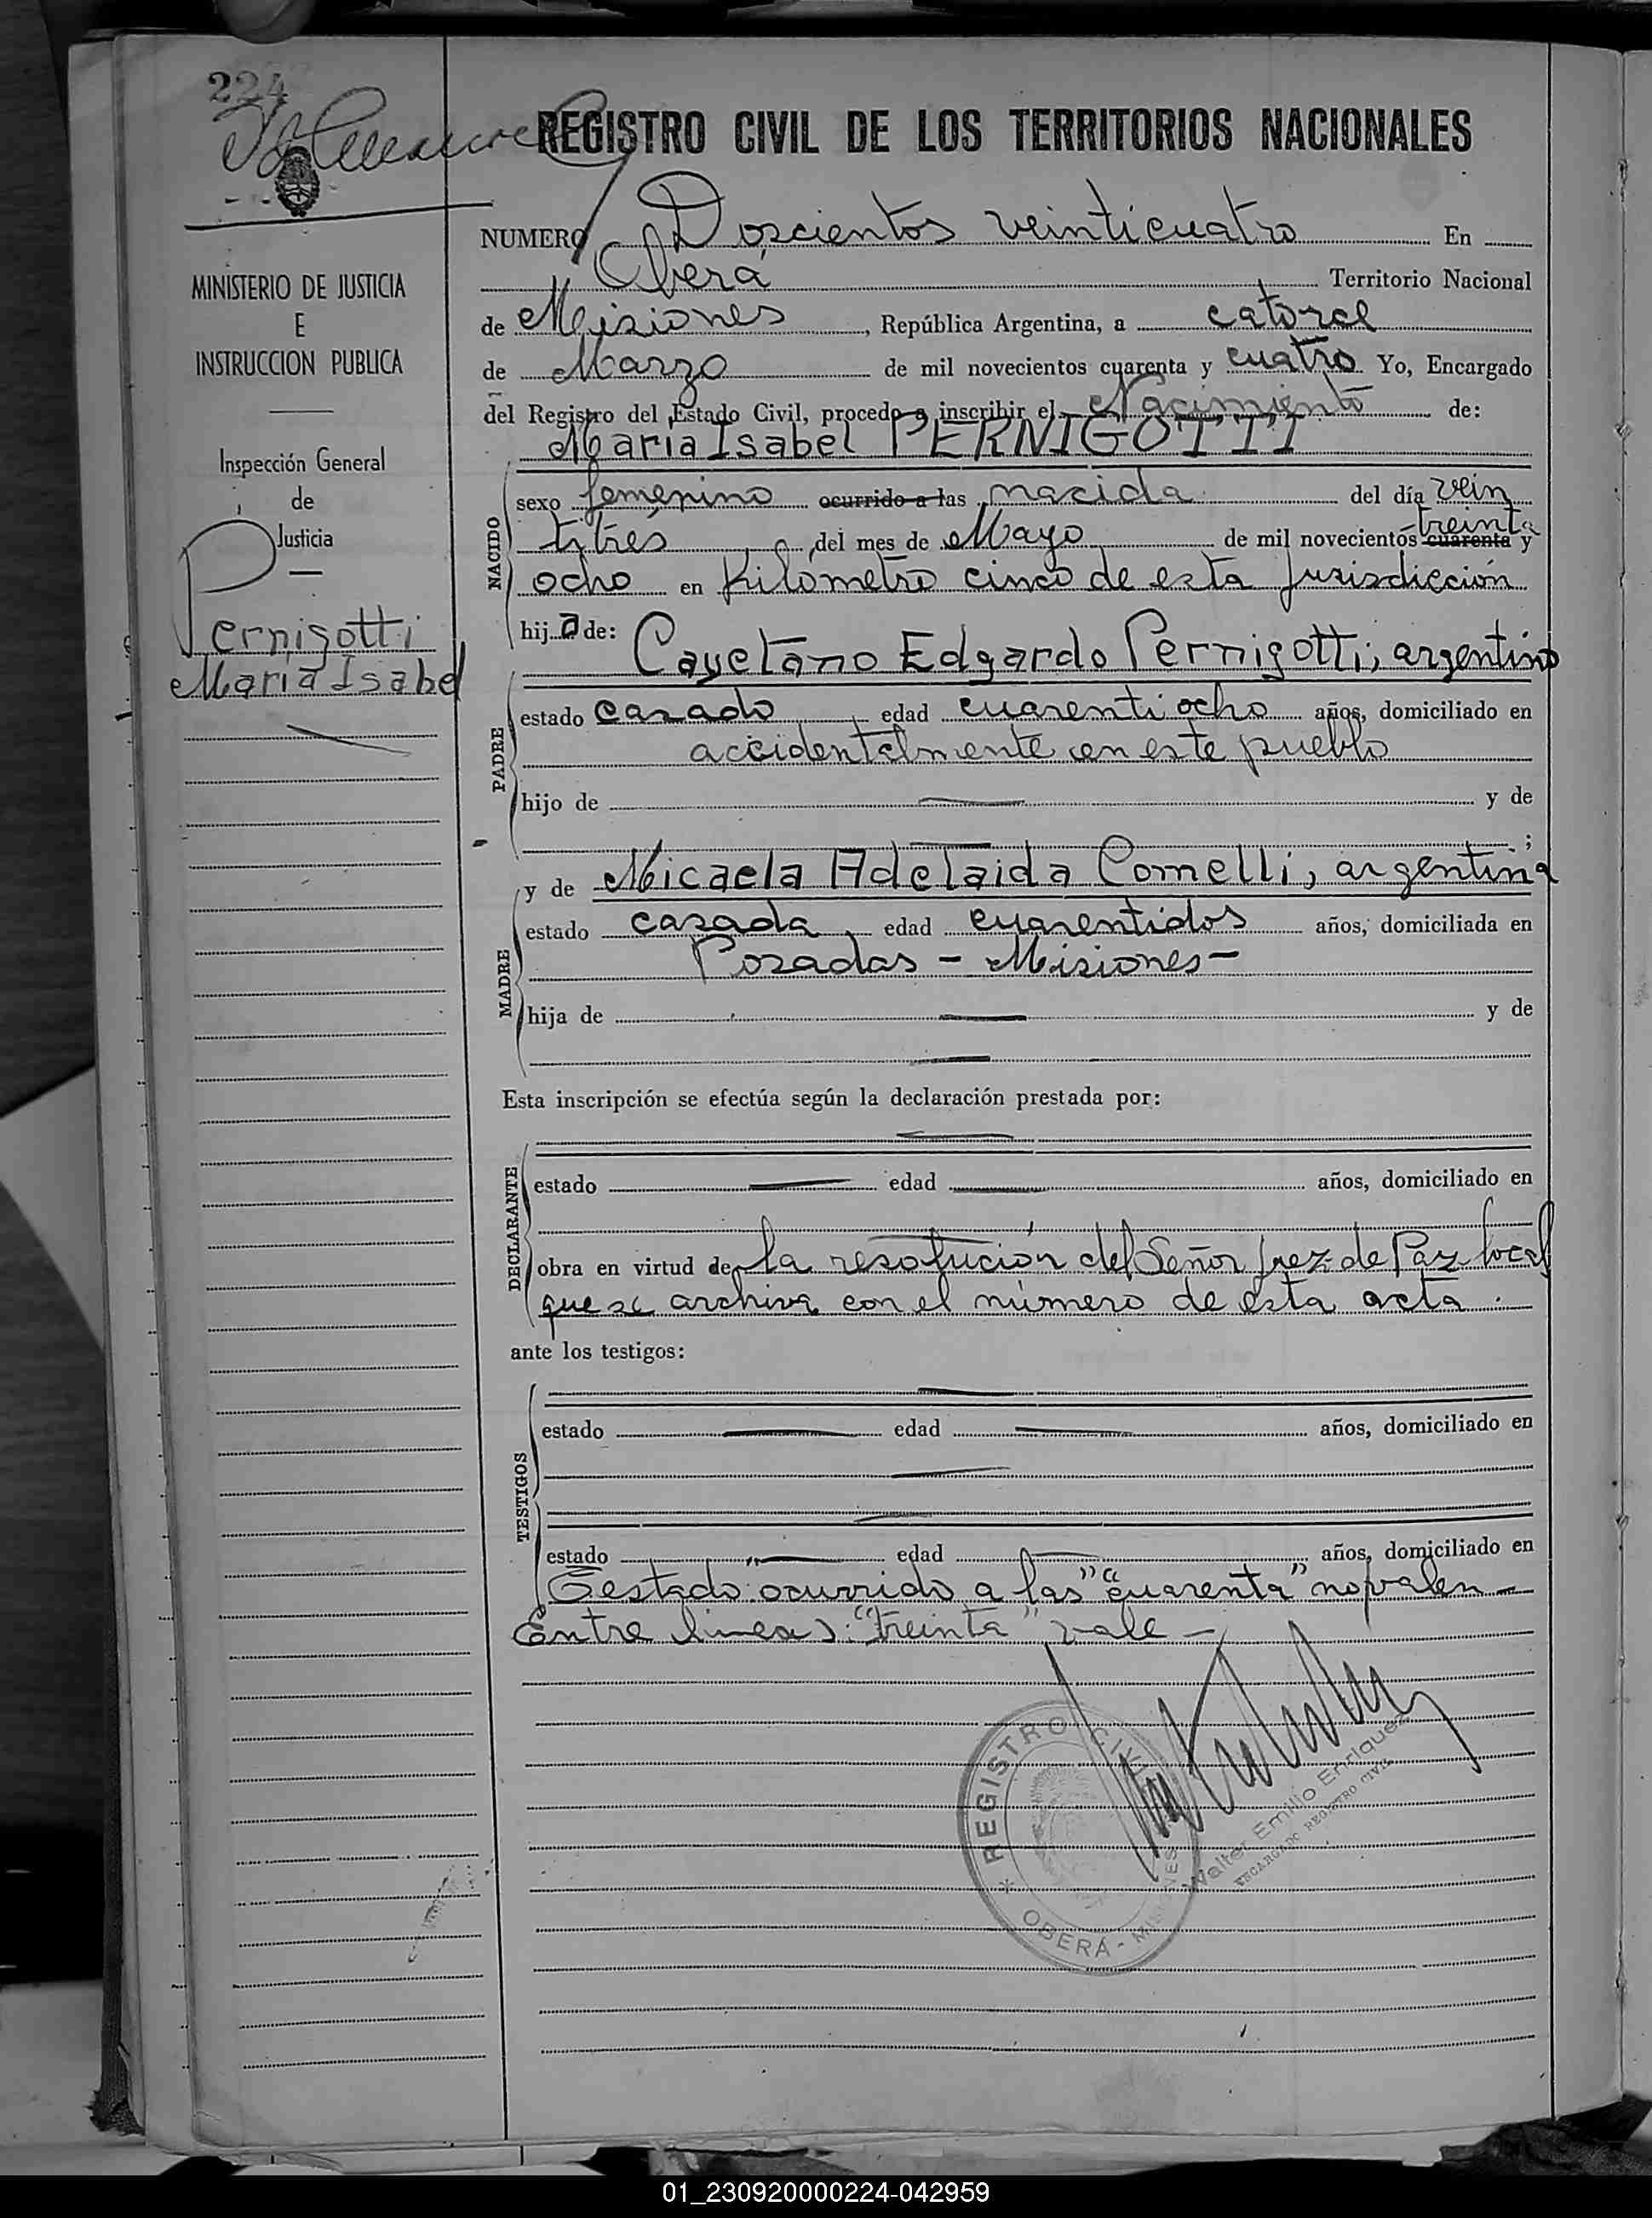 224
REGISTRO CIVIL DE LOS TERRITORIOS NACIONALES
MINISTERIO DE JUSTICIA
E
INSTRUCCION PUBLICA
Inspección General
de
Justicia
Pernigotti
María Isabel
NUMERO Doscientos veinticuatro En
Oberá Territorio Nacional
de Misiones, República Argentina, a catorce
de Marzo de mil novecientos cuarenta y cuatro Yo, Encargado
del Registro del Estado Civil, procedo a inscribir el Nacimiento de:
María Isabel PERNIGOTTI
NACIDO
sexo femenino ocurrido a las nacida del día vein
titrés, del mes de Mayo de mil novecientos treinta cuarenta y
ocho en Kilómetro cinco de esta jurisdicción
hija de:
Cayetano Edgardo Pernigotti, argentino
PADRE
estado casado, edad cuarentiocho años, domiciliado en
accidentalmente en este pueblo
hijo de y de
;
MADRE
y de Micaela Adelaida Comelli, argentina
estado casada, edad cuarentidos años, domiciliada en
Posadas - Misiones -
hija de y de
Esta inscripción se efectúa según la declaración prestada por:
DECLARANTE
estado edad años, domiciliado en
obra en virtud de la resolución del Señor Juez de Paz local
que se archiva con el número de esta acta.
ante los testigos:
TESTIGOS
estado edad años, domiciliado en
estado edad años, domiciliado en
Testado: ocurrido a las" "cuarenta" no valen -
Entre lineas: "treinta" vale -
REGISTRO CIVIL
OBERÁ - MISIONES
Walter Emilio Enriquez
ENCARGADO REGISTRO CIVIL
01_230920000224-042959